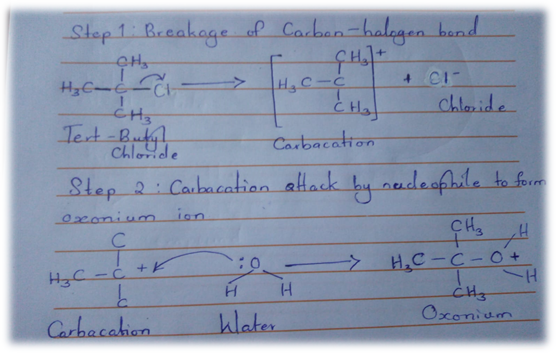 Step 1: Breakage of Carbon-halogen bond
CH3 CH3 +
H3C-C-Cl → H3C-C + Cl-
CH3 CH3 Chloride
Tert-Butyl
Chloride Carbacation
Step 2: Carbacation attack by nucleophile to form
oxonium ion
C CH3 H
H3C-C+ :O → H3C-C-O+
C H H CH3 H
Carbacation Water Oxonium